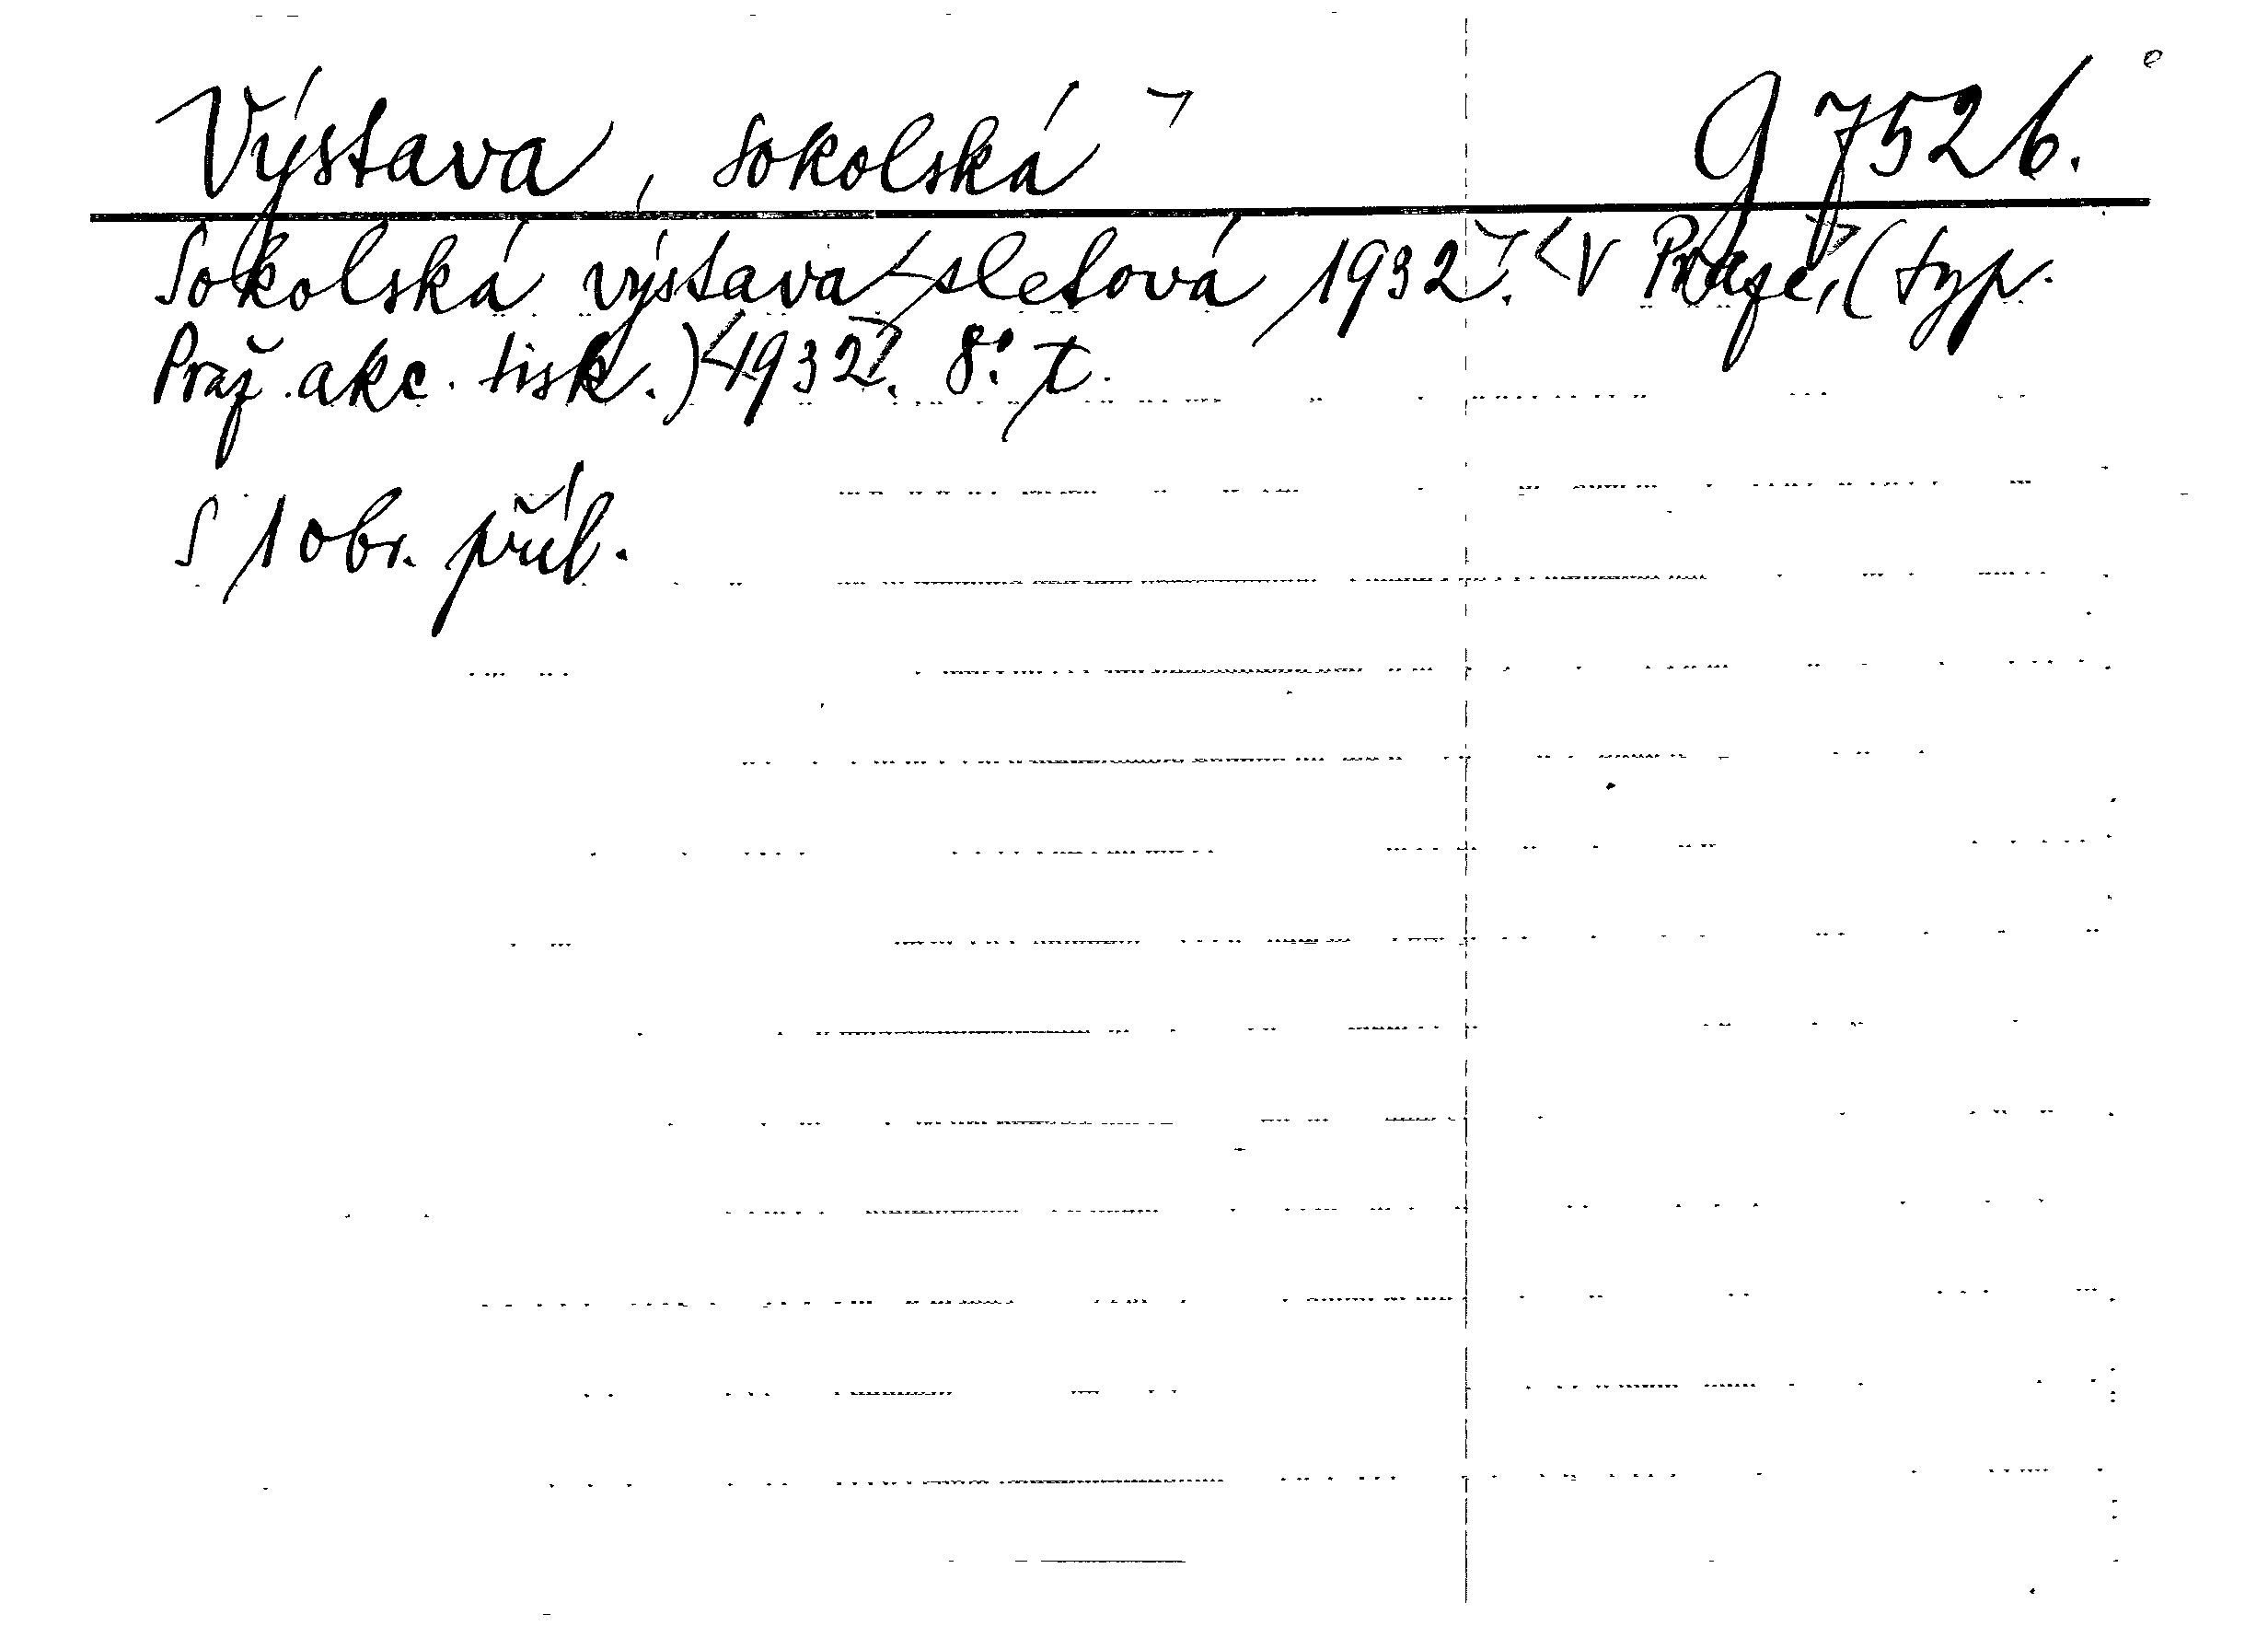 Výstava, sokolská G 7526.
Sokolská výstava sletová 1932. V Praze, (typ.
Praž. akc. tisk.) 1932. 8°. t.
S 1 obr. příl.